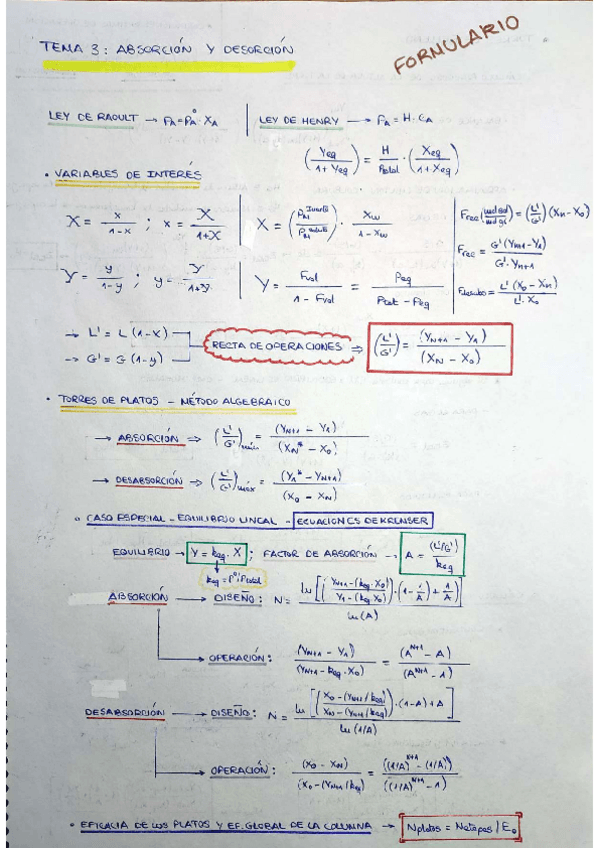 FORMULARIO
TEMA 3: ABSORCIÓN Y DESORCIÓN
LEY DE RAOULT → PA = PA° · XA | LEY DE HENRY → PA = H · CA
(Yeq / 1+Yeq) = H / Ptotal · (Xeq / 1+Xeq)
• VARIABLES DE INTERÉS
X = x / 1-x ; x = X / 1+X | X = (PM / PM) · Xw / 1-Xw | Frec = (L'/G') (XN - X0)
Frec = G' (YN+1 - Y1) / G' · YN+1
Y = y / 1-y ; y = Y / 1+Y | Y = Fvol / 1 - Fvol = Peq / Ptot - Peq | L' (X0 - XN) / L' · X0
→ L' = L (1-X)
→ G' = G (1-y)
RECTA DE OPERACIONES ⇒ (L'/G') = (YN+1 - Y1) / (XN - X0)
• TORRES DE PLATOS - MÉTODO ALGEBRAICO
→ ABSORCIÓN ⇒ (L'/G')mín = (YN+1 - Y1) / (XN* - X0)
→ DESABSORCIÓN ⇒ (L'/G')máx = (Y1* - YN+1) / (X0 - XN)
• CASO ESPECIAL - EQUILIBRIO LINEAL - ECUACIONES DE KREMSER
EQUILIBRIO → Y = keq · X ; FACTOR DE ABSORCIÓN → A = (L'/G') / keq
keq = P°/Ptotal
ABSORCIÓN → DISEÑO: N = ln [ ( YN+1 - (keq · X0) / Y1 - (keq · X0) ) · (1 - 1/A) + 1/A ] / ln(A)
OPERACIÓN: (YN+1 - Y1) / (YN+1 - keq · X0) = (A^N+1 - A) / (A^N+1 - 1)
DESABSORCIÓN → DISEÑO: N = ln [ ( X0 - (YN+1 / keq) / XN - (YN+1 / keq) ) · (1-A) + A ] / ln (1/A)
OPERACIÓN: (X0 - XN) / (X0 - (YN+1 / keq) = ((1/A)^N+1 - (1/A)) / ((1/A)^N+1 - 1)
• EFICACIA DE LOS PLATOS Y EF. GLOBAL DE LA COLUMNA → Nplatos = Netapas / E0